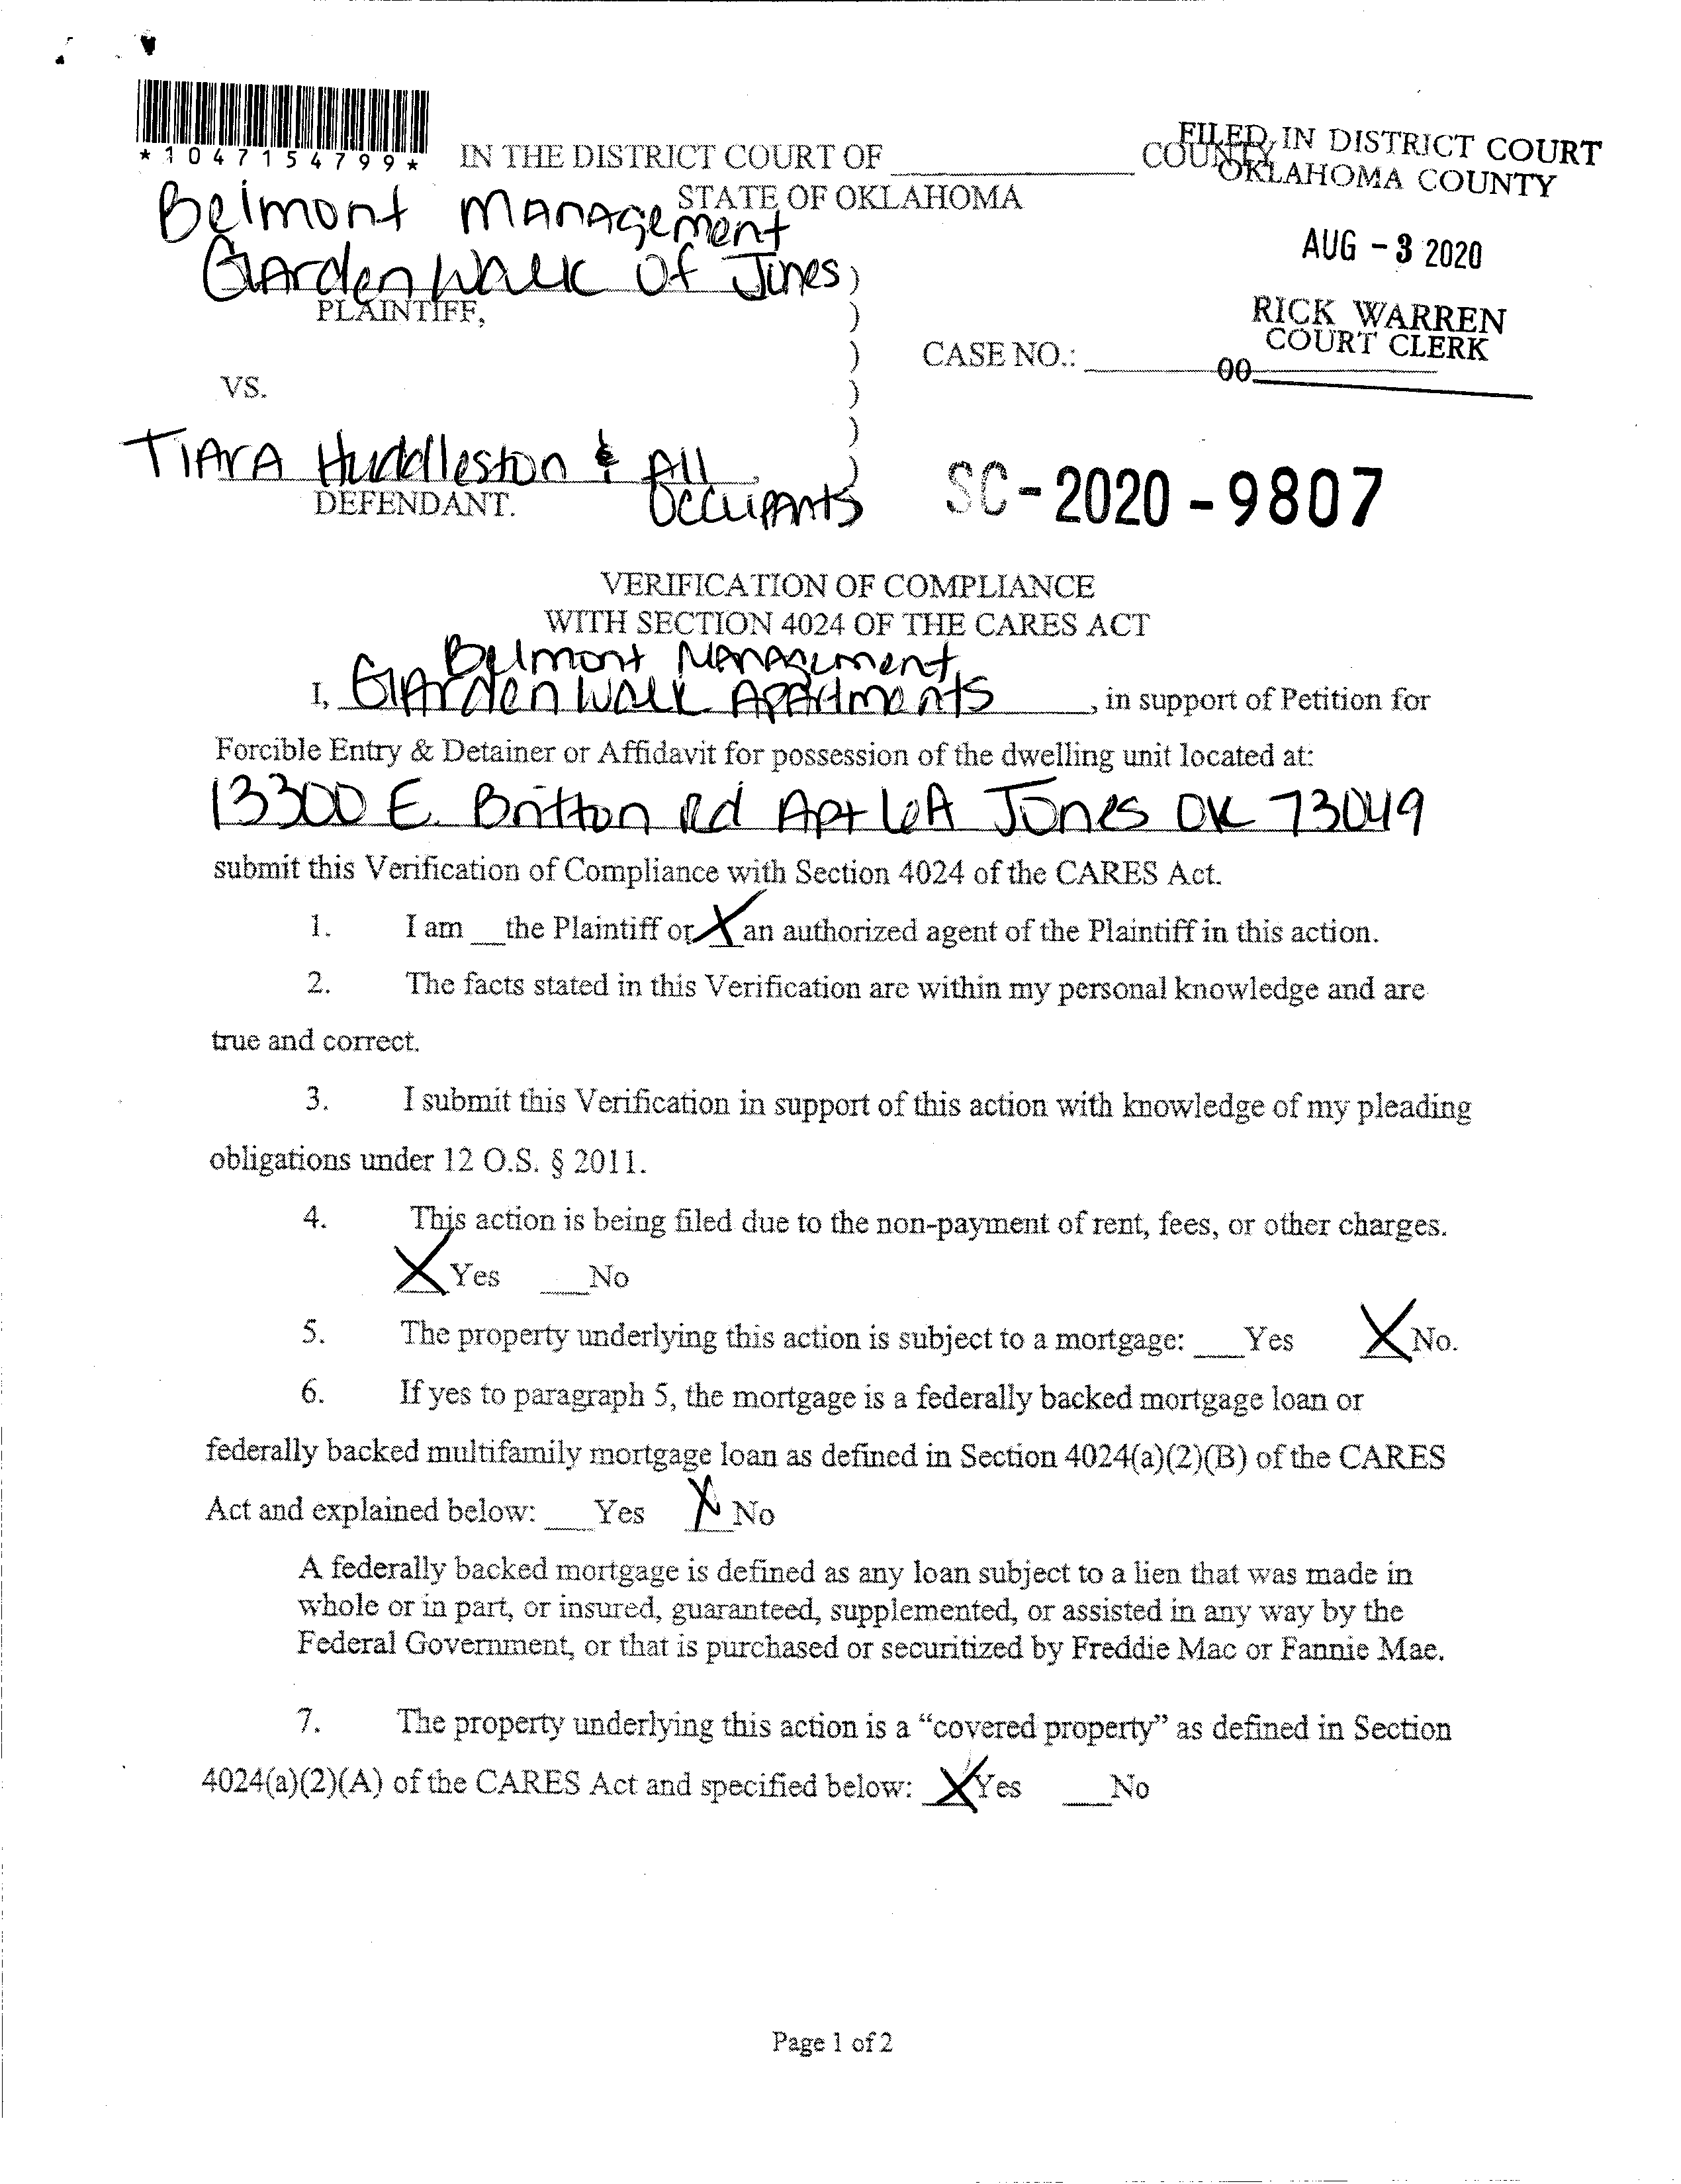 *1047154799*
IN THE DISTRICT COURT OF ____________ COUNTY
STATE OF OKLAHOMA
FILED IN DISTRICT COURT
OKLAHOMA COUNTY
AUG - 3 2020
RICK WARREN
COURT CLERK
00
Belmont Management
Garden Walk Of Jones )
PLAINTIFF, )
) CASE NO.: ____________
VS. )
)
Tiara Huddleston & All )
Occupants
DEFENDANT.
SC-2020-9807
VERIFICATION OF COMPLIANCE
WITH SECTION 4024 OF THE CARES ACT
Belmont Management
I, Garden Walk Apartments, in support of Petition for
Forcible Entry & Detainer or Affidavit for possession of the dwelling unit located at:
13300 E. Britton Rd Apt 6A Jones OK 73049
submit this Verification of Compliance with Section 4024 of the CARES Act.
1. I am __the Plaintiff or X an authorized agent of the Plaintiff in this action.
2. The facts stated in this Verification are within my personal knowledge and are
true and correct.
3. I submit this Verification in support of this action with knowledge of my pleading
obligations under 12 O.S. § 2011.
4. This action is being filed due to the non-payment of rent, fees, or other charges.
X Yes ___No
5. The property underlying this action is subject to a mortgage: ___Yes X No.
6. If yes to paragraph 5, the mortgage is a federally backed mortgage loan or
federally backed multifamily mortgage loan as defined in Section 4024(a)(2)(B) of the CARES
Act and explained below: ___Yes X No
A federally backed mortgage is defined as any loan subject to a lien that was made in
whole or in part, or insured, guaranteed, supplemented, or assisted in any way by the
Federal Government, or that is purchased or securitized by Freddie Mac or Fannie Mae.
7. The property underlying this action is a “covered property” as defined in Section
4024(a)(2)(A) of the CARES Act and specified below: X Yes ___No
Page 1 of 2